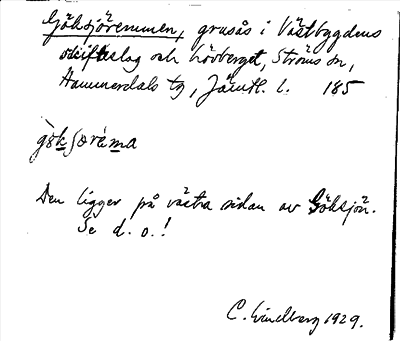 Göksjöremmen, grusås i Västbygdens
skifteslag och Lövberget, Ströms sn,
Hammerdals tg, Jämtl. l. 185
Den ligger på västra sidan av Göksjön.
Se d. o.!
C. Lindberg 1929.